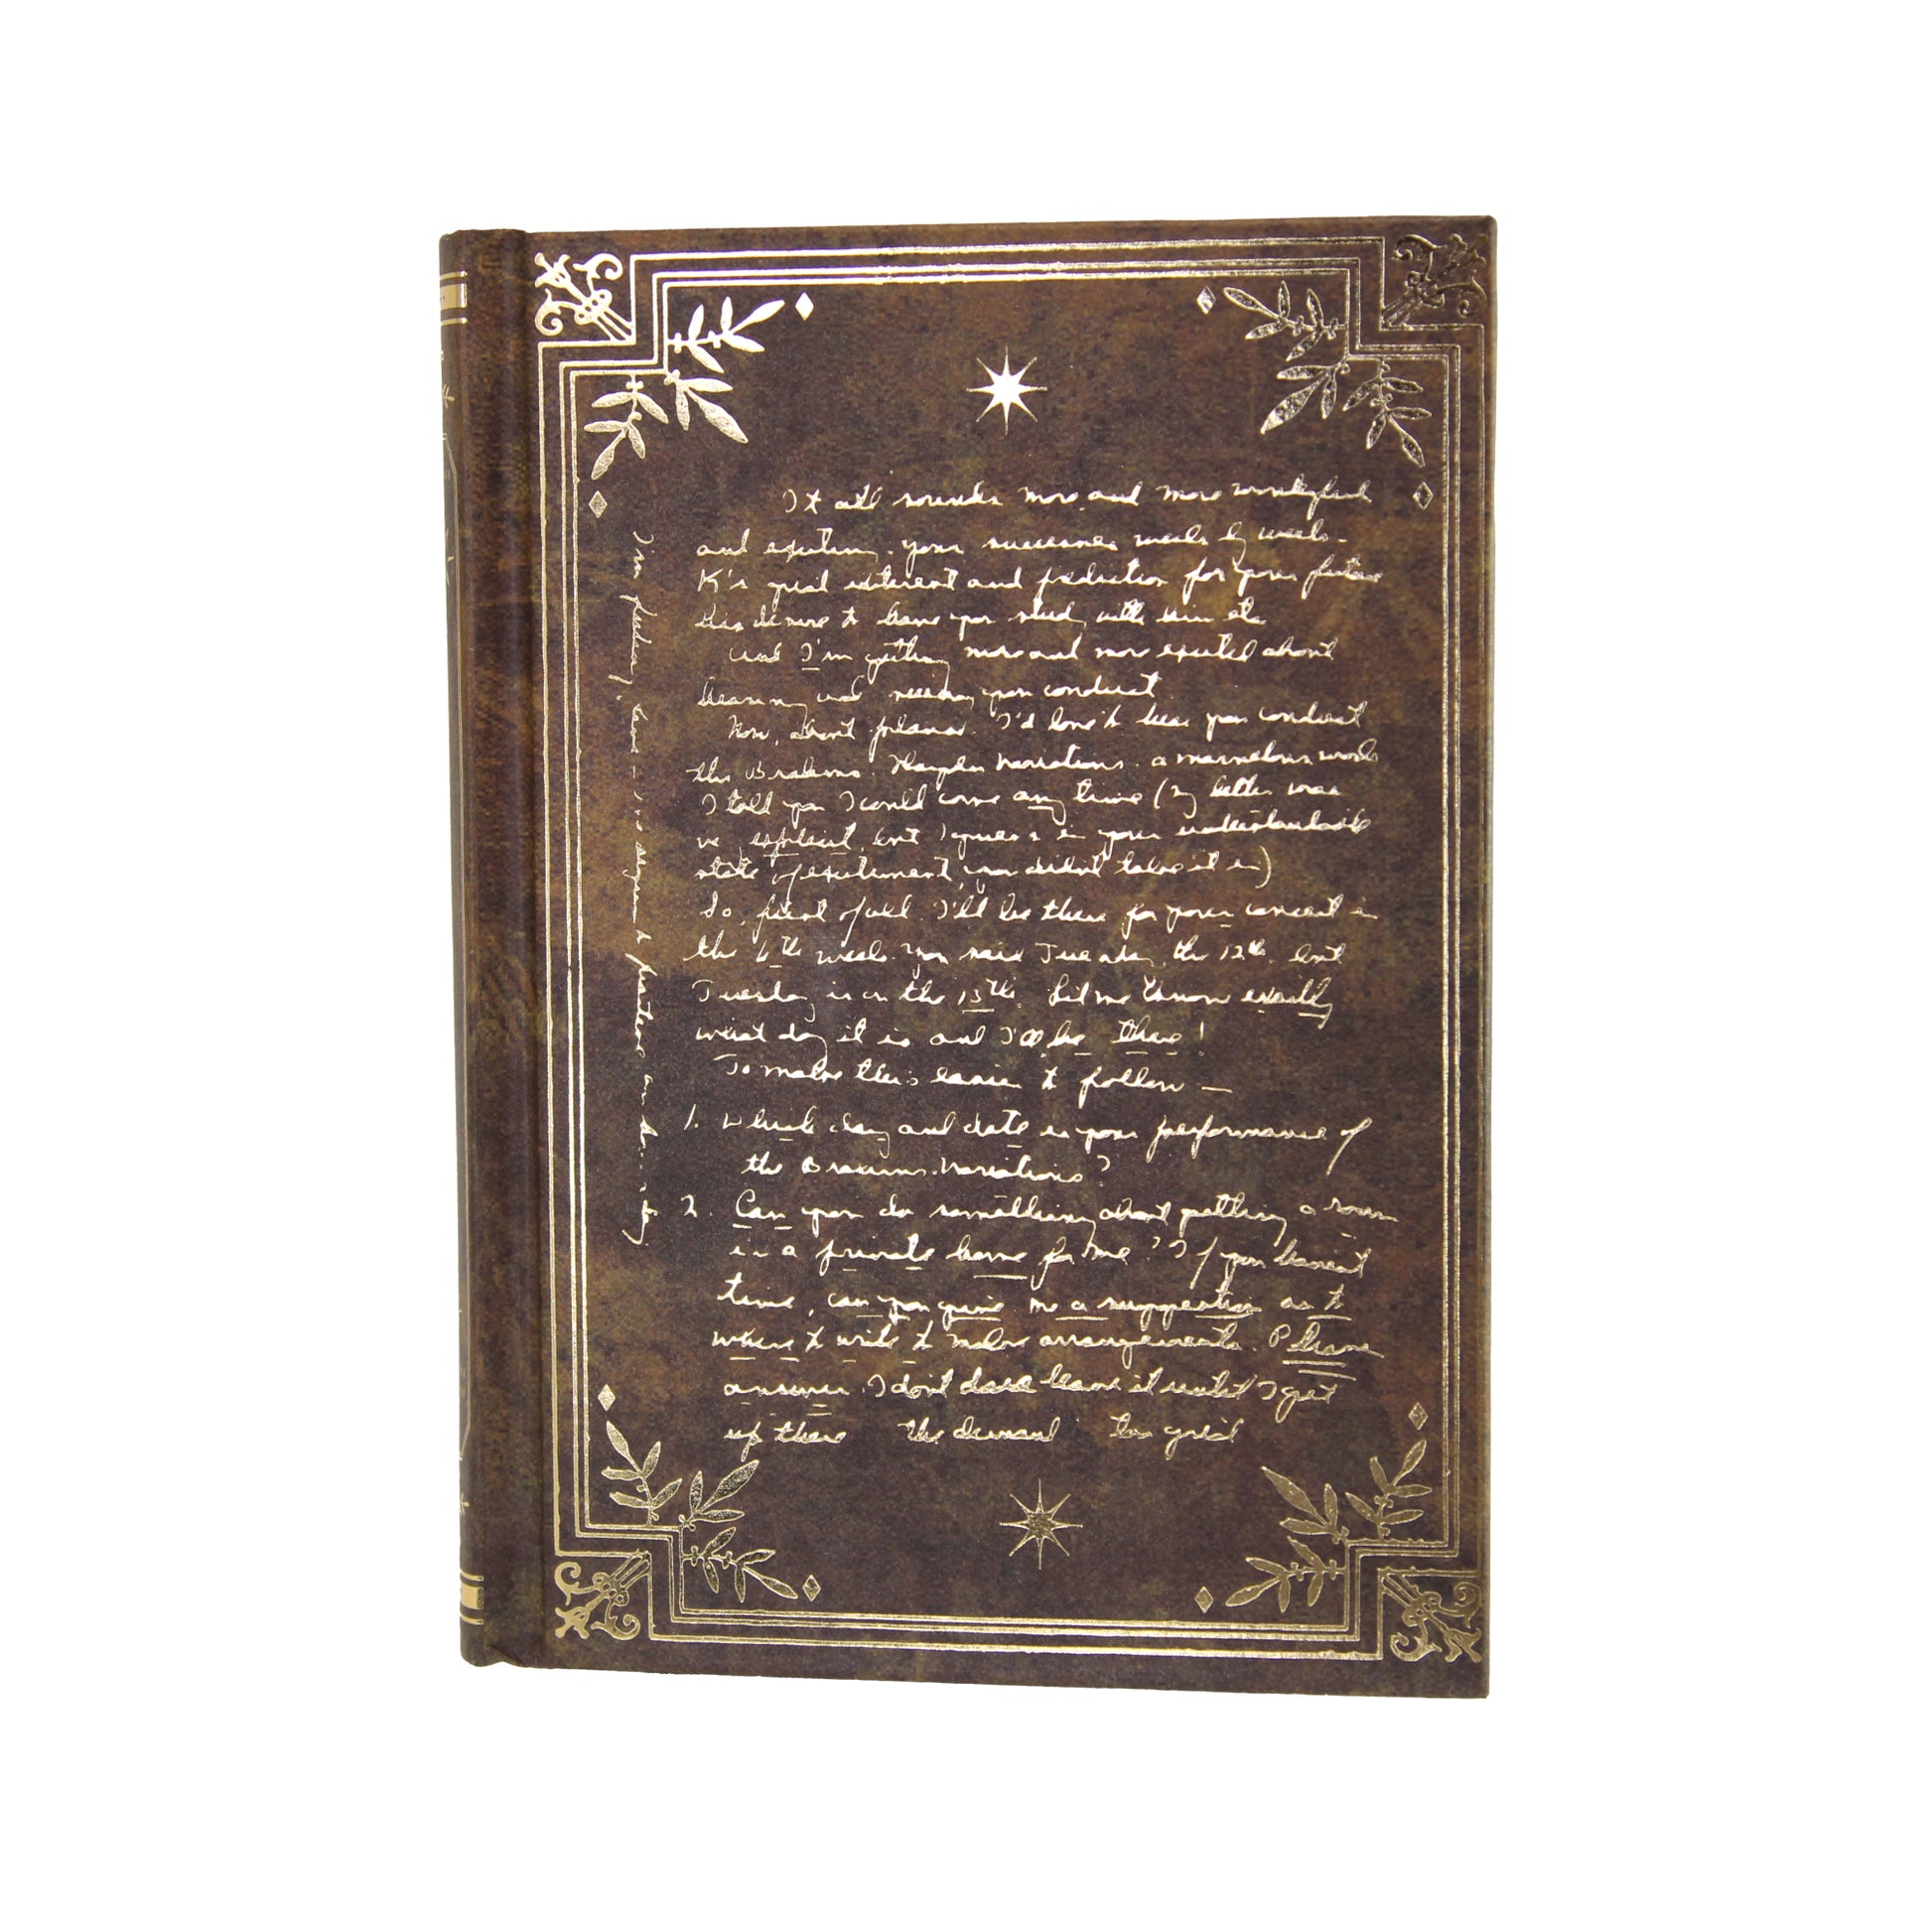 It all sounds more and more wonderful
and exciting. your successes week by week -
K's great interest and prediction for your future
his desire to have you study with him etc
and I'm getting more and more excited about
hearing and seeing you conduct
Now, about plans. I'd love to hear you conduct
the Brahms. Haydn Variations. a marvelous work
I told you I could come any time (my letter was
explicit, but I guess in your understandable
state of excitement you didn't take it in)
So, first of all I'll be there for your concert in
the 6th week. You said Tuesday, the 12th. but
Tuesday is on the 13th. Let me know exactly
what day it is and I'll be there!
To make this easier to follow —
1. Which day and date is your performance of
the Brahms. Variations?
2. Can you do something about getting a room
in a private home for me? If you haven't
time, can you give me a suggestion as to
where to write to make arrangements. Please
answer. I don't dare leave it until I get
up there the demand too great
I'm feeling fine -